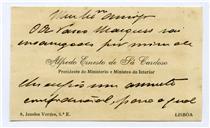 Meu caro amigo
O Dr. Vasco Marques vai
encarregado por mim de
Alfredo Ernesto de Sá Cardoso
Presidente do Ministerio e Ministro do Interior
um assunto
confidencial, para o qual
8, Janelas Verdes, 2.º E.
LISBOA